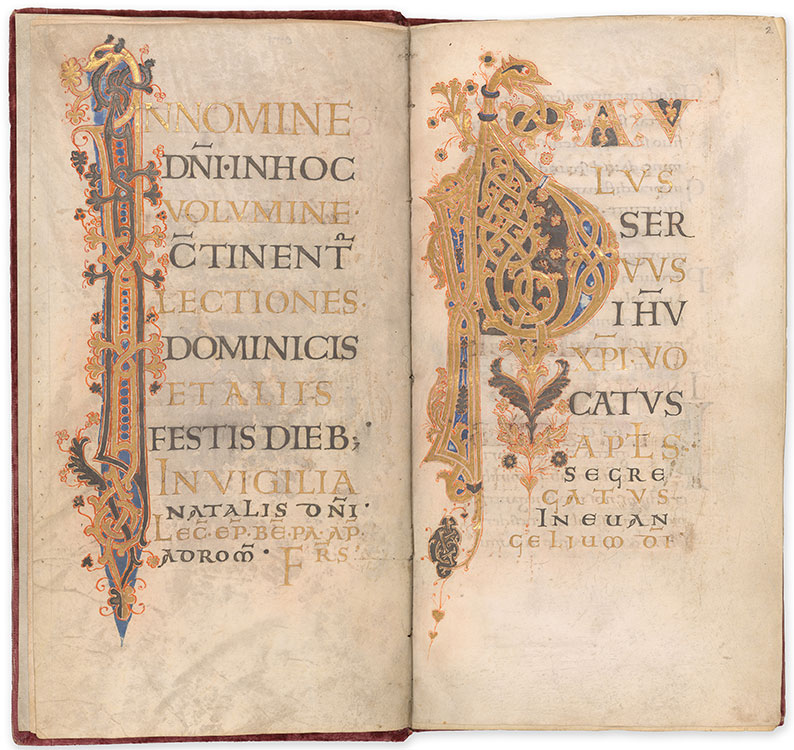 INNOMINE
DN̄I·INHOC
VOLVMINE·
C̄TINENTᴾ
LECTIONES·
DOMINICIS
ET ALIIS
FESTIS DIEB;
IN VIGILIA
NATALIS DN̄I·
LEC̄·EP̄·BĒ·PA·AP̄·
ADROM̄·
FRS·
2
PAV
LVS
SER
VVS
IH̄V
XP̄I·VO
CATVS
APL̄S·
SEGRE
CATVS·
IN EVAN
GELIUM DĪ·